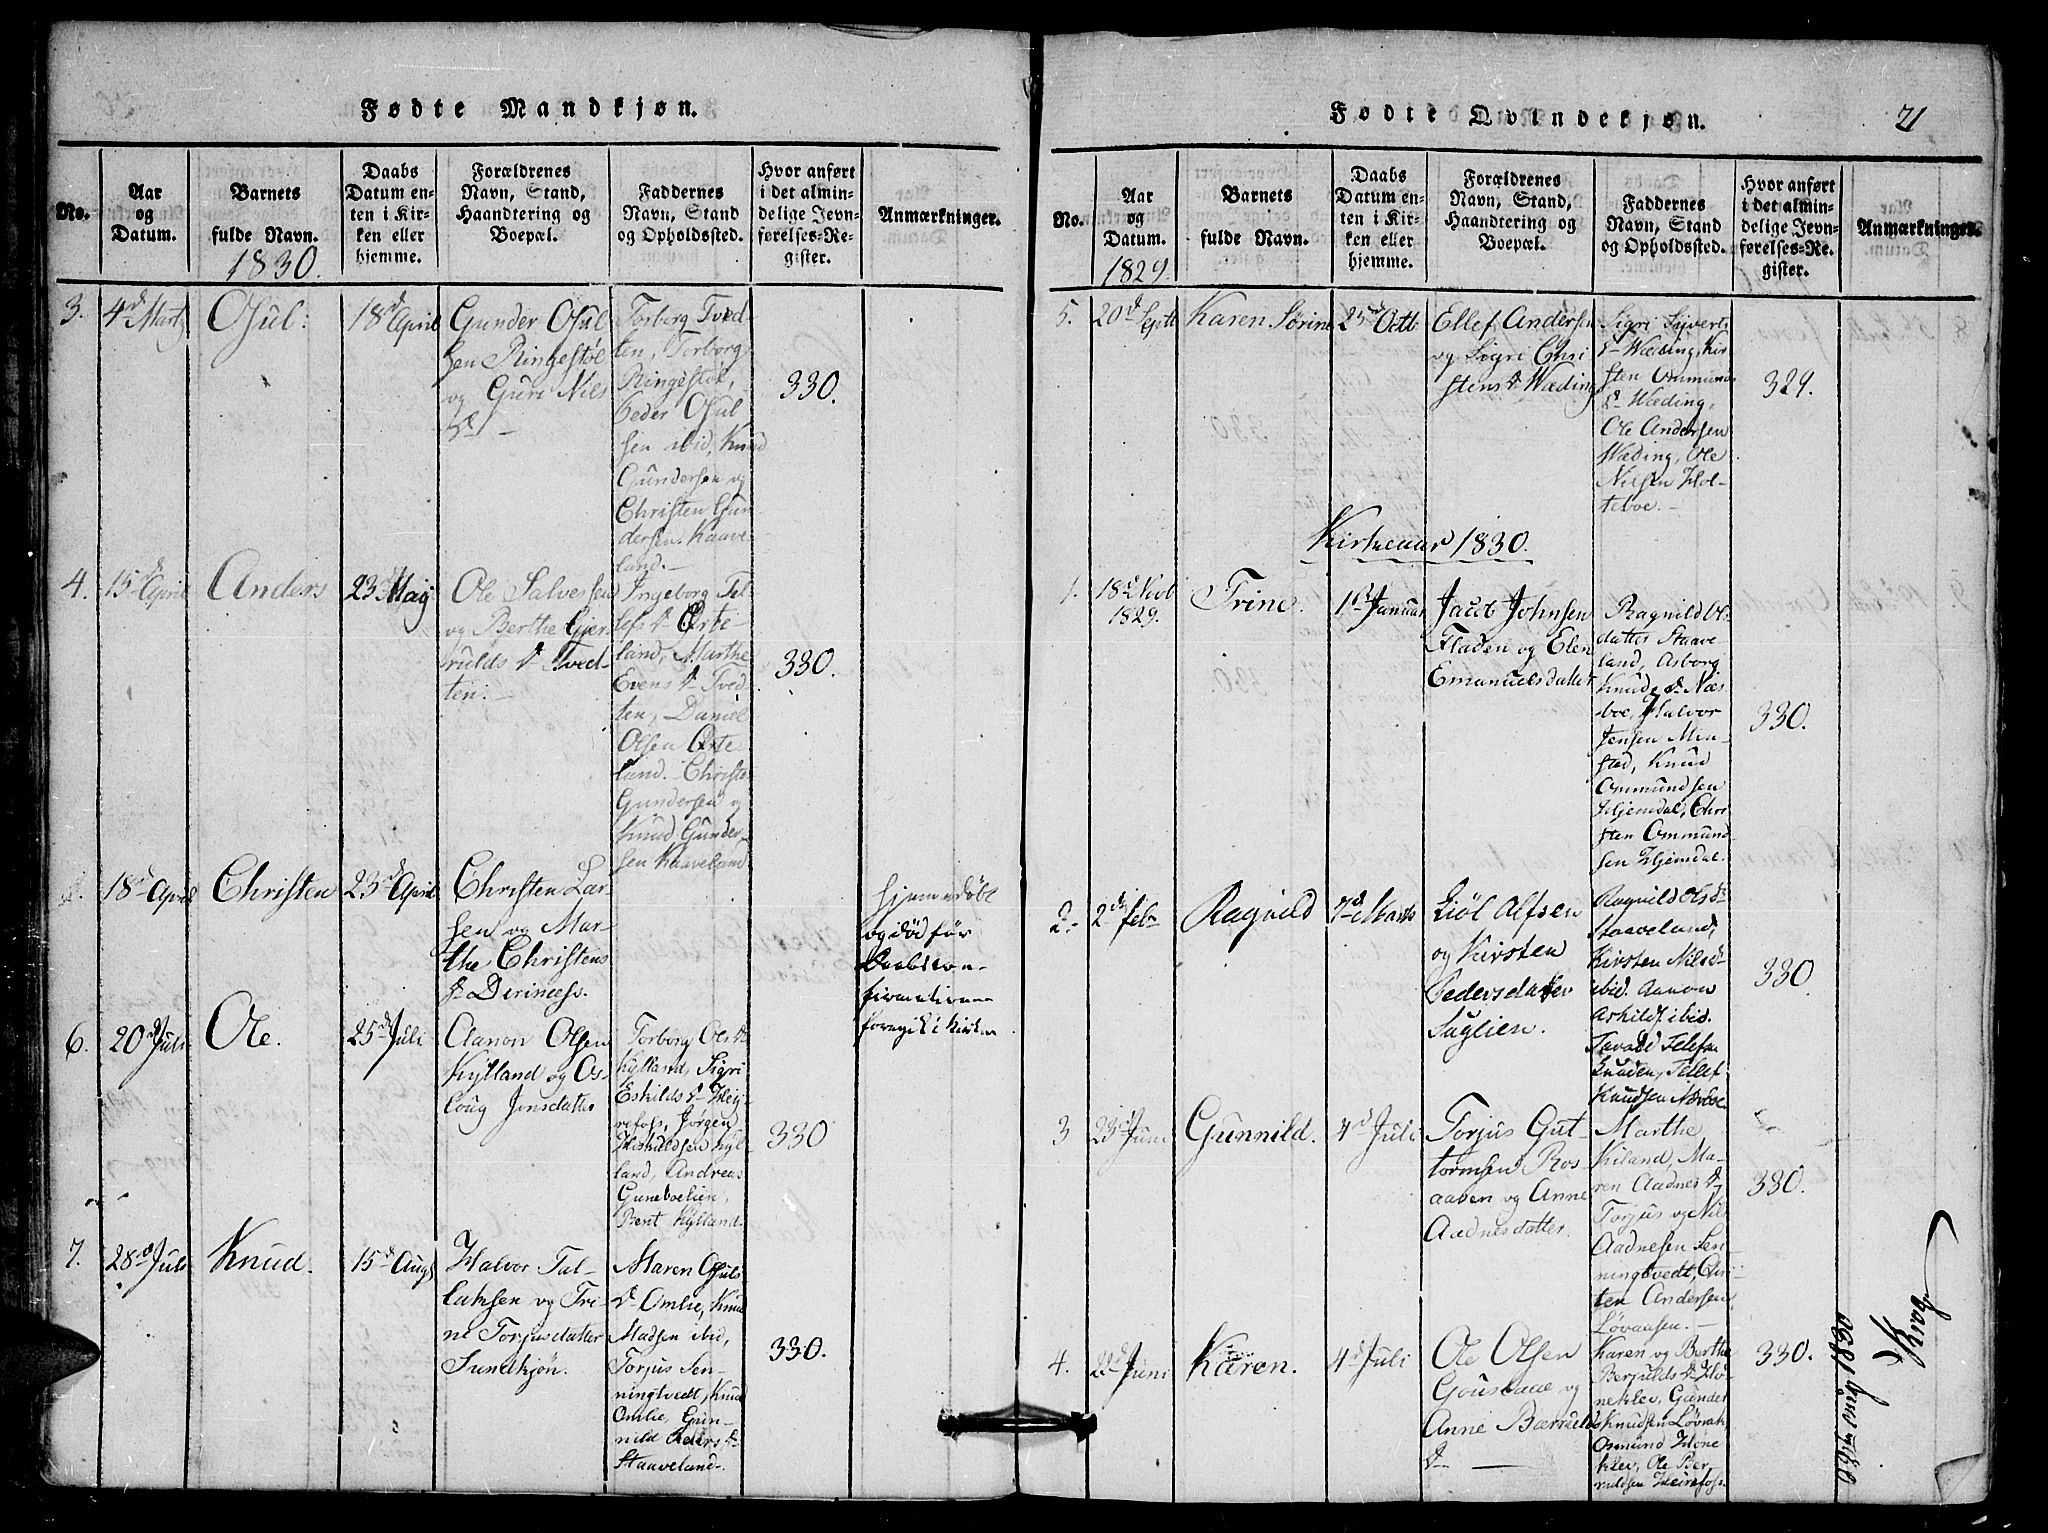 Fødte Mandkjøn.
No.
Aar
og
Datum.
Barnets
fulde Navn.
1830.
Daabs
Datum en-
ten i Kir-
ken eller
hjemme.
Forældrenes
Navn, Stand,
Haandtering og
Boepæl.
Faddernes
Navn, Stand
og Opholdssted.
Hvor anført
i det almin-
delige Jevn-
førelses-Re-
gister.
Anmærkninger.
3.
4d Marts
Osul:
18d April
Gunder Osul
sen Ringestøl
og Guri Nils
d -
Torborg Tved-
ten, Torborg
Ringestøl,
Peder Osul
sen ibid, Knud
Gundersen og
Christen Gun
dersen Kaave-
land.
330.
4.
15d April
Anders
23d Maij
Ole Salvesen
og Berthe Gjer
rulds d Tved-
ten.
Ingeborg Tel
lefs d
land, Marthe
Evens d Tved-
ten, Daniel
Olsen
land. Christen
Gundersen og
Knud Gunder-
sen Kaaveland
330.
18d April
Christen
23d April
Christen Lar-
sen og Mar-
the Christens
d Derinæss.
Hjemmedøbt
og død før
Daabskon-
firmationen
foregik i Kirken
6.
20d Juli
Ole.
25d Juli
Aanon Olsen
Kylland og As-
loug Jonsdatter
Torborg Ols d
Kylland, Sigri
Eskilds d Hei-
refoss, Jørgen
Kyl-
land, Andreas
Bent Kylland.
330
7.
28d Juli
Knud.
15d Augs
Halvor Tal-
laksen og Tri-
ne Torjusdatter
Sundkjøn.
Maren Osuls
d Omlie, Knud
Madsen ibid,
Torjus Sen-
ningtvedt, Knud
Omlie, Gun-
nild
Staaveland.
330.
Fødte Qvindekjøn.
21
No.
Aar
og
Datum.
1829.
Barnets
fulde Navn.
Daabs
Datum en-
ten i Kir-
ken eller
hjemme.
Forældrenes
Navn, Stand,
Haandtering og
Boepæl.
Faddernes
Navn, Stand
og Opholdssted.
Hvor anført
i det almin-
delige Jevn-
førelses-Re-
gister.
Anmærkninger.
5.
20d Septb
Karen Sørine
25d Octb
Ellef Andersen
og Sigri Chri
stens d Wæding
Sigri Sivert
d Wæding, Kir-
sten Ommunds
d Wæding,
Ole Andersen
Wæding, Ole
Nilsen Hol-
teboe.
329.
Kirkeaar 1830.
1.
18d Novb
1829.
Trine.
1d Januar
Jacob Johnsen
Fladen og Elen
Emanuelsdatter
Ragnild Ols
datter Staave-
land, Asborg
Knuds d Næs
boe, Halvor
Jensen Mon-
stad, Knud
Ommundsen
Hjemdal, Chri
sten Ommund
sen Hjemdal.
330.
2.
2d Febr
Ragnild
7d Marts
Kiøl Alfsen
og Kirsten
Pedersdatter
Suglien.
Ragnild Ols d
Staaveland,
Kirsten Nils d
ibid. Aanon
Askilds ibid.
Tellef
Knudsen Næsboe
330
3
23d Juni
Gunnild.
4d Juli
Torjus Gut-
tormsen Ros-
aasen og Anne
Aadnesdatter.
Marthe
Kiland, Ma-
ren Aadnes d
Torjus og Nils
Aadnesen Sen-
ningtvedt, Chri-
sten Andersen
Løvaasen.
330.
4.
Juni
Karen.
4d Juli
Ole Olsen
og
Anne Bærulds
d
Karen og Berthe
Berulds d Hø-
neklev, Gunder
Knudsen Løvrak
Osmund Høne
klev, Ole Ber
ruldsen Heirefoss.
330.
1830